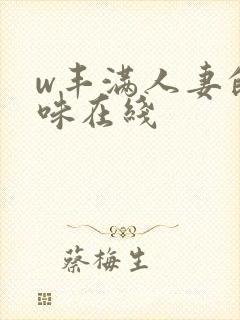 w丰满人妻的
味在线
蔡梅生